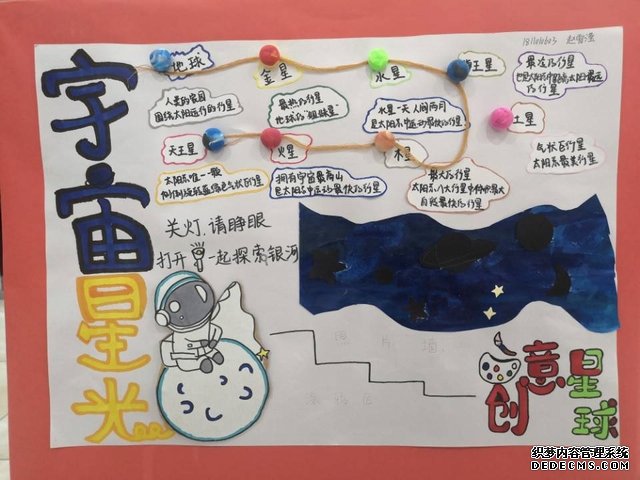 宇宙星光
181101603 赵雪滢
地球
金星
水星
海王星
土星
人类的家园
围绕太阳运行的行星
最热的行星
地球的"姐妹星"
水星一天 人间两月
是太阳系中运动最快的行星
最冷的行星
也是太阳系中距离太阳最远
的行星
天王星
火星
木星
气状巨行星
太阳系最美行星
太阳系唯一一颗
拥有宇宙最高山
最大的行星
太阳系八大行星中体积最大
自转最快的行星
关灯,请睁眼
打开 一起探索银河
照片墙
涂鸦区
创意星球
织梦内容管理系统
DEDECMS.COM